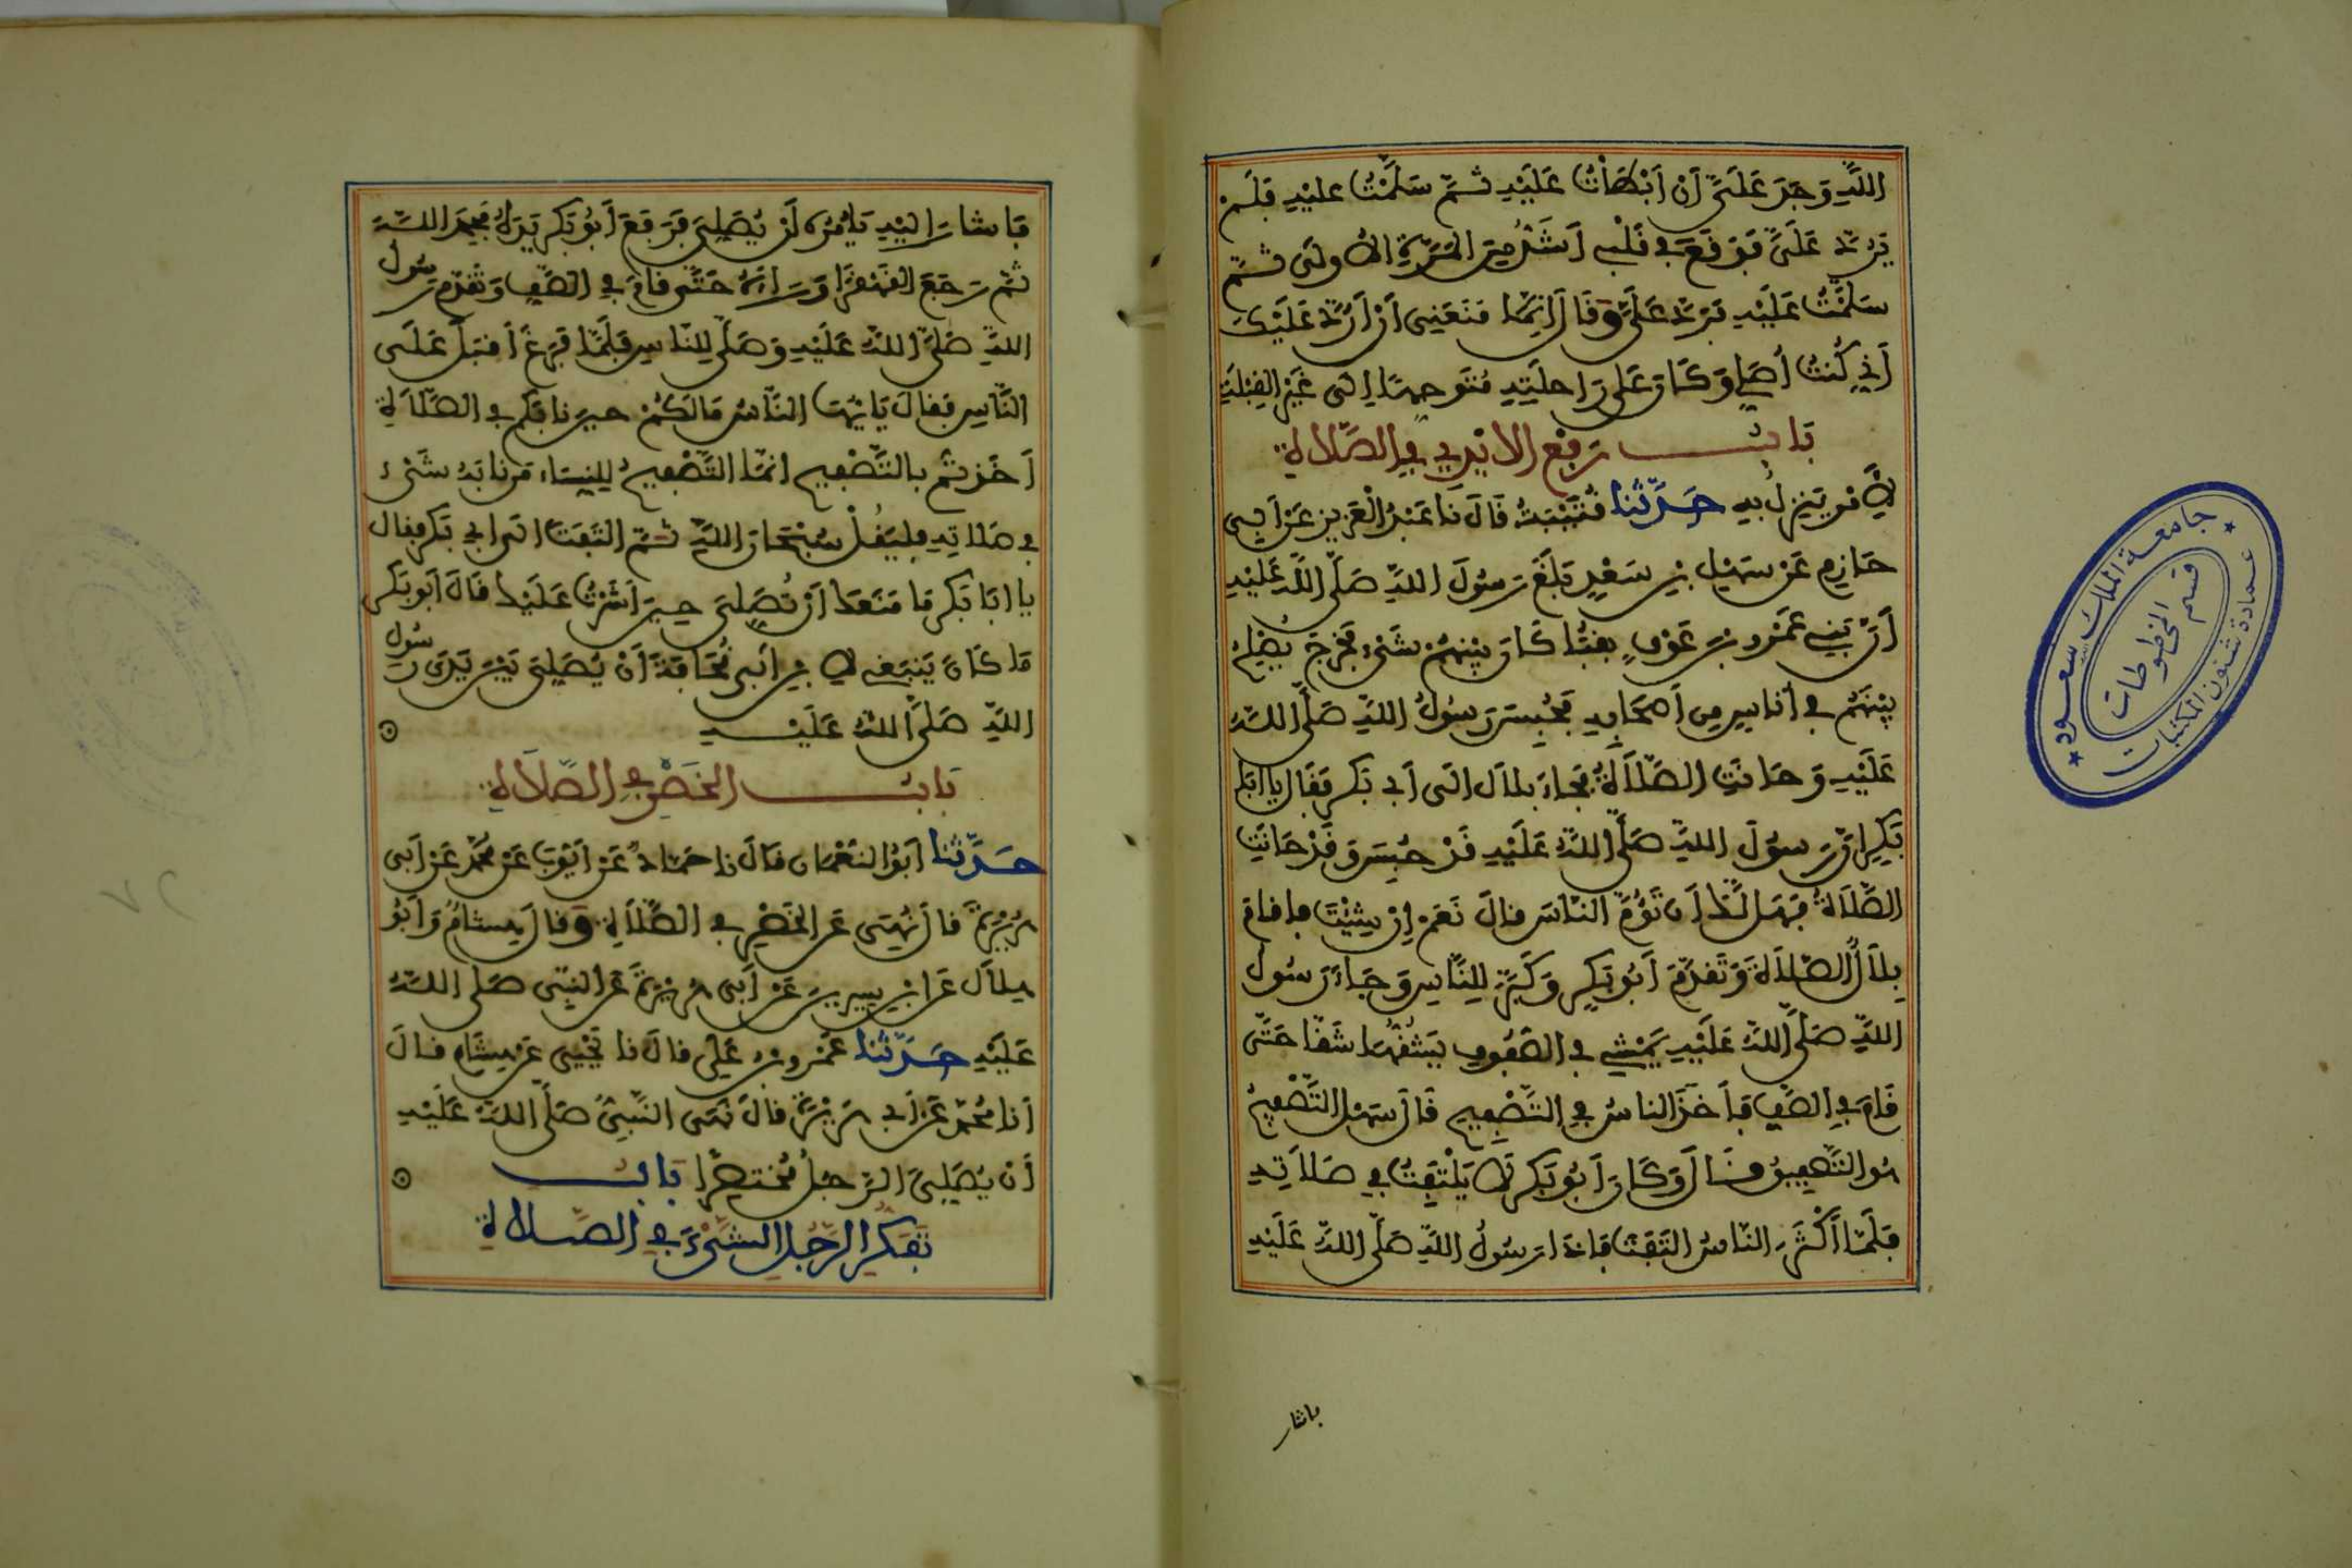 اللَّهِ وَجَدَ عَلَيَّ أَنْ أَبْطَأْتُ عَلَيْهِ ثُمَّ سَلَّمْتُ عليْهِ فَلَمْ
يَرُدَّ عَلَيَّ فَوَقَعَ فِي قَلْبِي أَشَدُّ مِنَ الْمَرَّةِ الْأُولَى ثُمَّ
سَلَّمْتُ عَلَيْهِ فَرَدَّ عَلَيَّ وَقَالَ إِنَّمَا مَنَعَنِي أَنْ أَرُدَّ عَلَيْكَ
أَنِّي كُنْتُ أُصَلِّي وَكَانَ عَلَى رَاحِلَتِهِ مُتَوَجِّهًا إِلَى غَيْرِ الْقِبْلَةِ
بَابُ رَفْعِ الْأَيْدِي فِي الصَّلَاةِ
لِأَمْرٍ يَنْزِلُ بِهِ حَدَّثَنَا قُتَيْبَةُ قَالَ نَا عَبْدُ الْعَزِيزِ عَنْ أَبِي
حَازِمٍ عَنْ سَهْلِ بْنِ سَعْدٍ بَلَغَ رَسُولَ اللَّهِ صَلَّى اللَّهُ عَلَيْهِ
أَنَّ بَنِي عَمْرِو بْنِ عَوْفٍ بِقُبَا كَانَ بَيْنَهُمْ شَيْءٌ فَخَرَجَ يُصْلِحُ
بَيْنَهُمْ فِي أُنَاسٍ مِنْ أَصْحَابِهِ فَحُبِسَ رَسُولُ اللَّهِ صَلَّى اللَّهُ
عَلَيْهِ وَحَانَتِ الصَّلَاةُ فَجَاءَ بِلَالٌ إِلَى أَبِي بَكْرٍ فَقَالَ يَا أَبَا
بَكْرٍ إِنَّ رَسُولَ اللَّهِ صَلَّى اللَّهُ عَلَيْهِ قَدْ حُبِسَ وَقَدْ حَانَتِ
الصَّلَاةُ فَهَلْ لَكَ أَنْ تَؤُمَّ النَّاسَ قَالَ نَعَمْ إِنْ شِئْتَ فَأَقَامَ
بِلَالٌ الصَّلَاةَ وَتَقَدَّمَ أَبُو بَكْرٍ وَكَبَّرَ لِلنَّاسِ وَجَاءَ رَسُولُ
اللَّهِ صَلَّى اللَّهُ عَلَيْهِ يَمْشِي فِي الصُّفُوفِ يَشُقُّهَا شَقًّا حَتَّى
قَامَ فِي الصَّفِّ فَأَخَذَ النَّاسُ فِي التَّصْفِيحِ قَالَ سَهْلٌ التَّصْفِيحُ
هُوَ التَّصْفِيقُ قَالَ وَكَانَ أَبُو بَكْرٍ لَا يَلْتَفِتُ فِي صَلَاتِهِ
فَلَمَّا أَكْثَرَ النَّاسُ الْتَفَتَ فَإِذَا رَسُولُ اللَّهِ صَلَّى اللَّهُ عَلَيْهِ
فَأَشَارَ
جامعة الملك سعود
قسم المخطوطات
عمادة شئون المكتبات
فَأَشَارَ إِلَيْهِ يَأْمُرُهُ أَنْ يُصَلِّيَ فَرَفَعَ أَبُو بَكْرٍ يَدَهُ فَحَمِدَ اللَّهَ
ثُمَّ رَجَعَ الْقَهْقَرَا وَرَاءَهُ حَتَّى قَامَ فِي الصَّفِّ وَتَقَدَّمَ رَسُولُ
اللَّهِ صَلَّى اللَّهُ عَلَيْهِ وَصَلَّى لِلنَّاسِ فَلَمَّا فَرَغَ أَقْبَلَ عَلَى
النَّاسِ فَقَالَ يَا أَيُّهَا النَّاسُ مَالَكُمْ حِينَ نَابَكُمْ فِي الصَّلَاةِ
أَخَذْتُمْ بِالتَّصْفِيحِ إِنَّمَا التَّصْفِيحُ لِلنِّسَاءِ مَنْ نَابَهُ شَيْءٌ
فِي صَلَاتِهِ فَلْيَقُلْ سُبْحَانَ اللَّهِ ثُمَّ الْتَفَتَ إِلَى أَبِي بَكْرٍ فَقَالَ
يَا أَبَا بَكْرٍ مَا مَنَعَكَ أَنْ تُصَلِّيَ حِينَ أَشَرْتُ عَلَيْكَ قَالَ أَبُو بَكْرٍ
مَا كَانَ يَنْبَغِي لِابْنِ أَبِي قُحَافَةَ أَنْ يُصَلِّيَ بَيْنَ يَدَيْ رَسُولِ
اللَّهِ صَلَّى اللَّهُ عَلَيْهِ
بَابُ الْخَصْرِ فِي الصَّلَاةِ
حَدَّثَنَا أَبُو النُّعْمَانِ قَالَ نَا حَمَّادٌ عَنْ أَيُّوبَ عَنْ مُحَمَّدٍ عَنْ أَبِي
هُرَيْرَةَ قَالَ نُهِيَ عَنِ الْخَصْرِ فِي الصَّلَاةِ وَقَالَ هِشَامٌ وَأَبُو
هِلَالٍ عَنِ ابْنِ سِيرِينَ عَنْ أَبِي هُرَيْرَةَ عَنِ النَّبِيِّ صَلَّى اللَّهُ
عَلَيْهِ حَدَّثَنَا عَمْرُو بْنُ عَلِيٍّ قَالَ نَا يَحْيَى عَنْ هِشَامٍ قَالَ
أَنَا مُحَمَّدٌ عَنْ أَبِي هُرَيْرَةَ قَالَ نَهَى النَّبِيُّ صَلَّى اللَّهُ عَلَيْهِ
أَنْ يُصَلِّيَ الرَّجُلُ مُخْتَصِرًا بَابُ
تَفَكُّرِ الرَّجُلِ الشَّيْءَ فِي الصَّلَاةِ